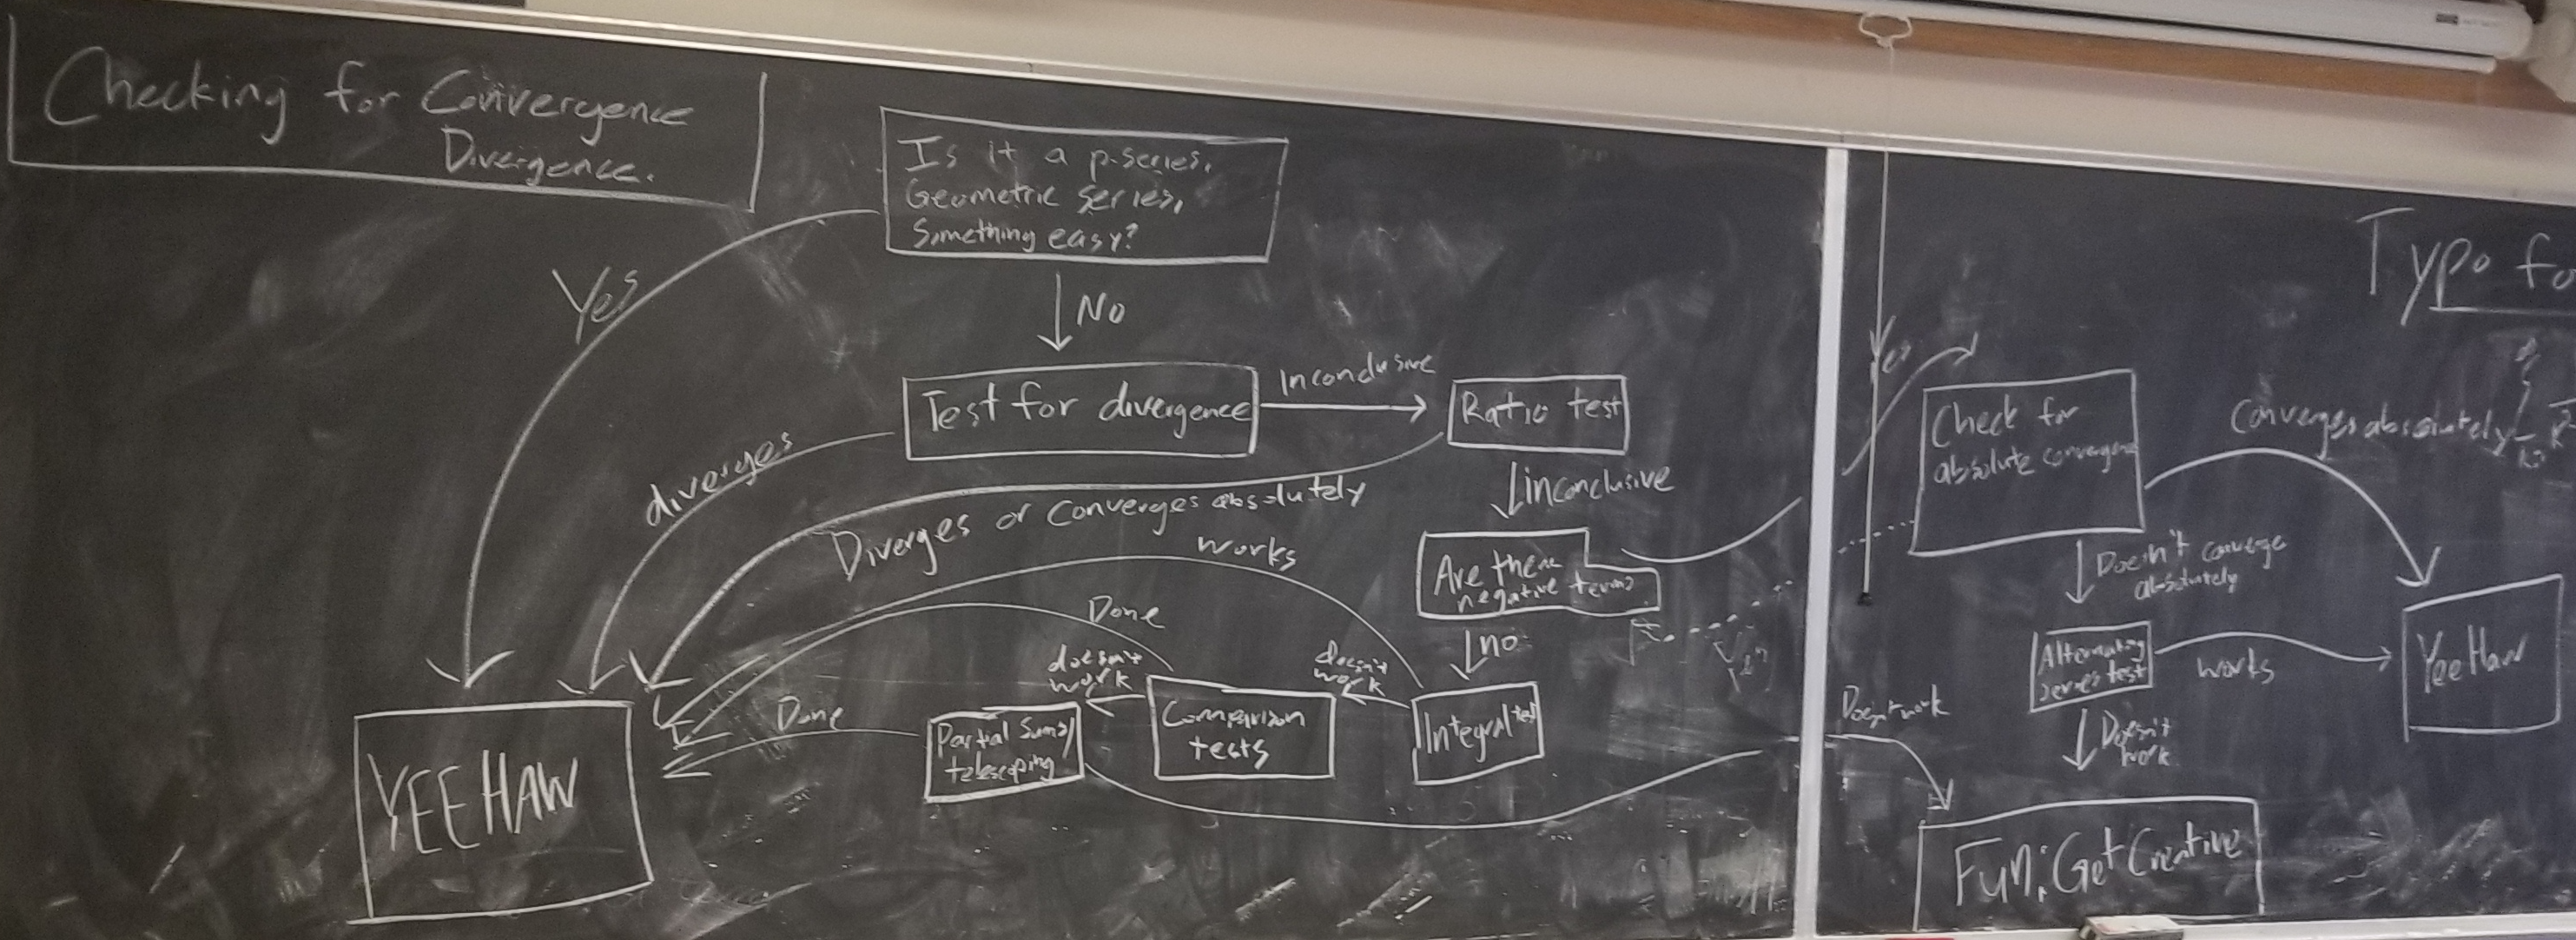 Checking for Convergence
Divergence.
Is it a p-series,
Geometric series,
Something easy?
Yes
No
Test for divergence
Inconclusive
Ratio test
diverges
Diverges or Converges absolutely
inconclusive
Are there
negative terms
Yes
no
works
Integral test
doesn't
work
Comparison
tests
Done
doesn't
work
Partial Sums/
telescoping
Done
YEE HAW
Doesn't work
Check for
absolute convergence
Converges absolutely
Doesn't converge
absolutely
Alternating
series test
works
Yee Haw
Doesn't
work
Fun: Get Creative
Typo fo